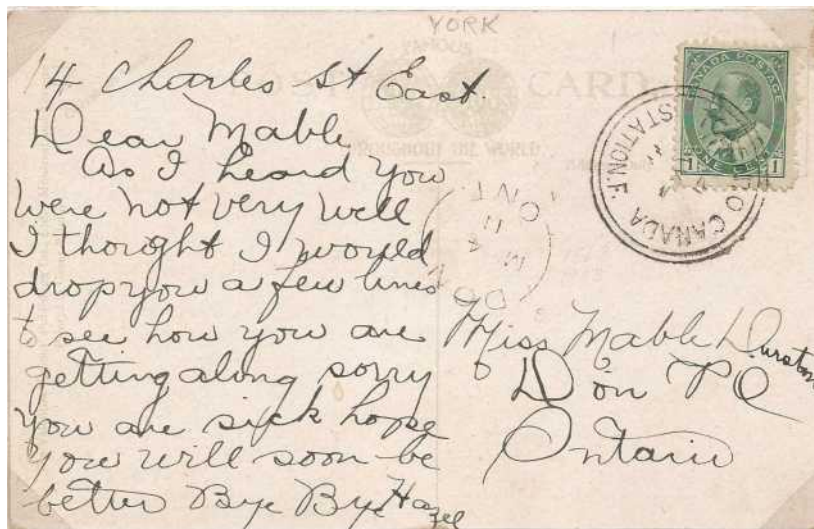 YORK
FAMOUS
CARD
THROUGHOUT THE WORLD
CANADA POSTAGE
1 ONE CENT 1
O CANADA
STATION. F.
ONT
M 8
11
DON
14 Charles St East.
Dear Mable
As I heard you
were not very well
I thought I would
drop you a few lines
to see how you are
getting along sorry
you are sick hope
you will soon be
better Bye Bye Hazel
Miss Mable Durston
Don PO
Ontario